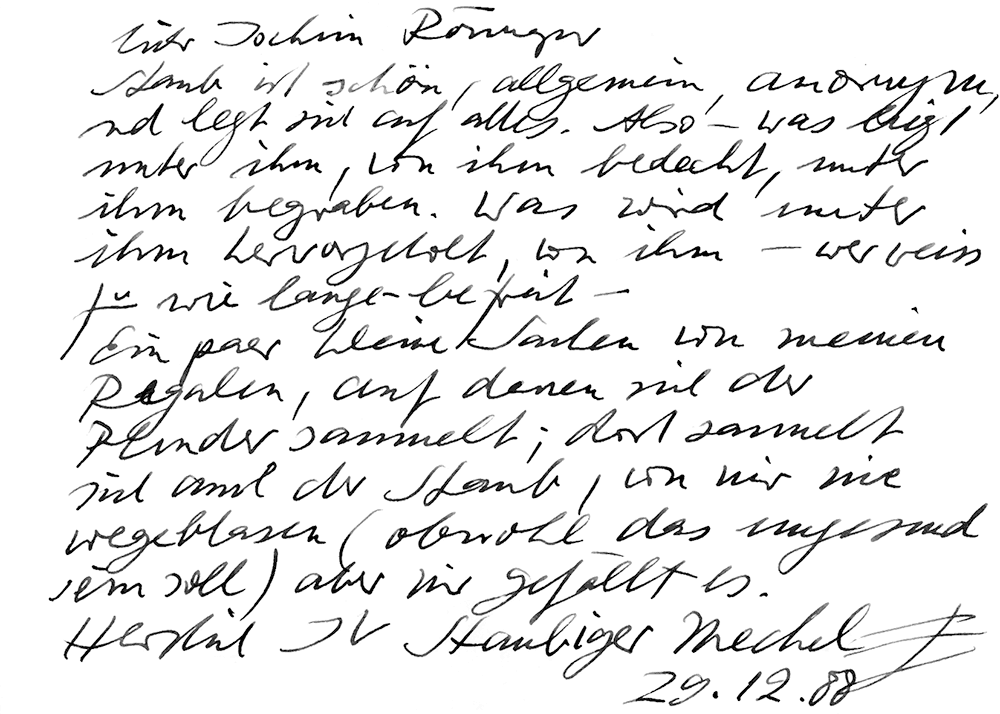 Lieber Jochim Rönneper
Staub ist schön, allgemein, anonym,
und legt sich auf alles. Also – was liegt
unter ihm, von ihm bedeckt, unter
ihm begraben. Was wird unter
ihm hervorgeholt, von ihm – wer weiss
für wie lange – befreit –
Ein paar kleine Sachen von meinen
Regalen, auf denen sich der
Plunder sammelt; dort sammelt
sich auch der Staub, von mir nie
wegeblasen (obwohl das ungesund
sein soll) aber mir gefällt es.
Herzlich Ihr Staubiger Meckel
29.12.88